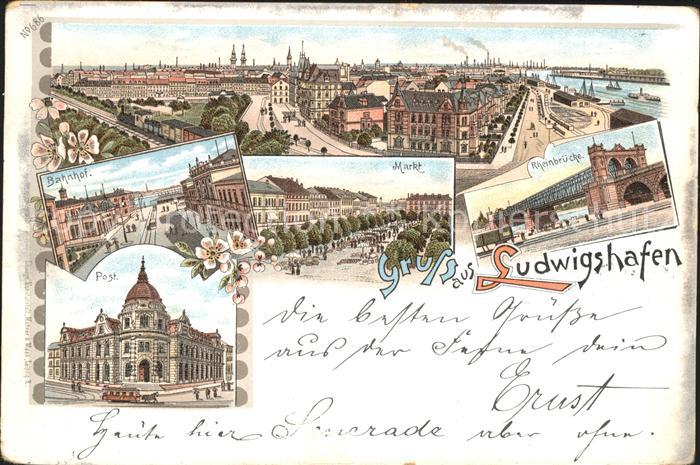 No 686
Bahnhof.
Markt
Rheinbrücke.
Post.
Gruss aus Ludwigshafen
Die besten Grüße
aus der Ferne dein
Ernst
Heute hier Serenade aber ohne.